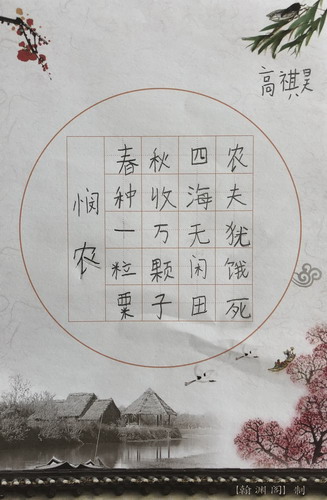 高祺昊
悯农
春种一粒粟
秋收万颗子
四海无闲田
农夫犹饿死
[翰渊阁] 制